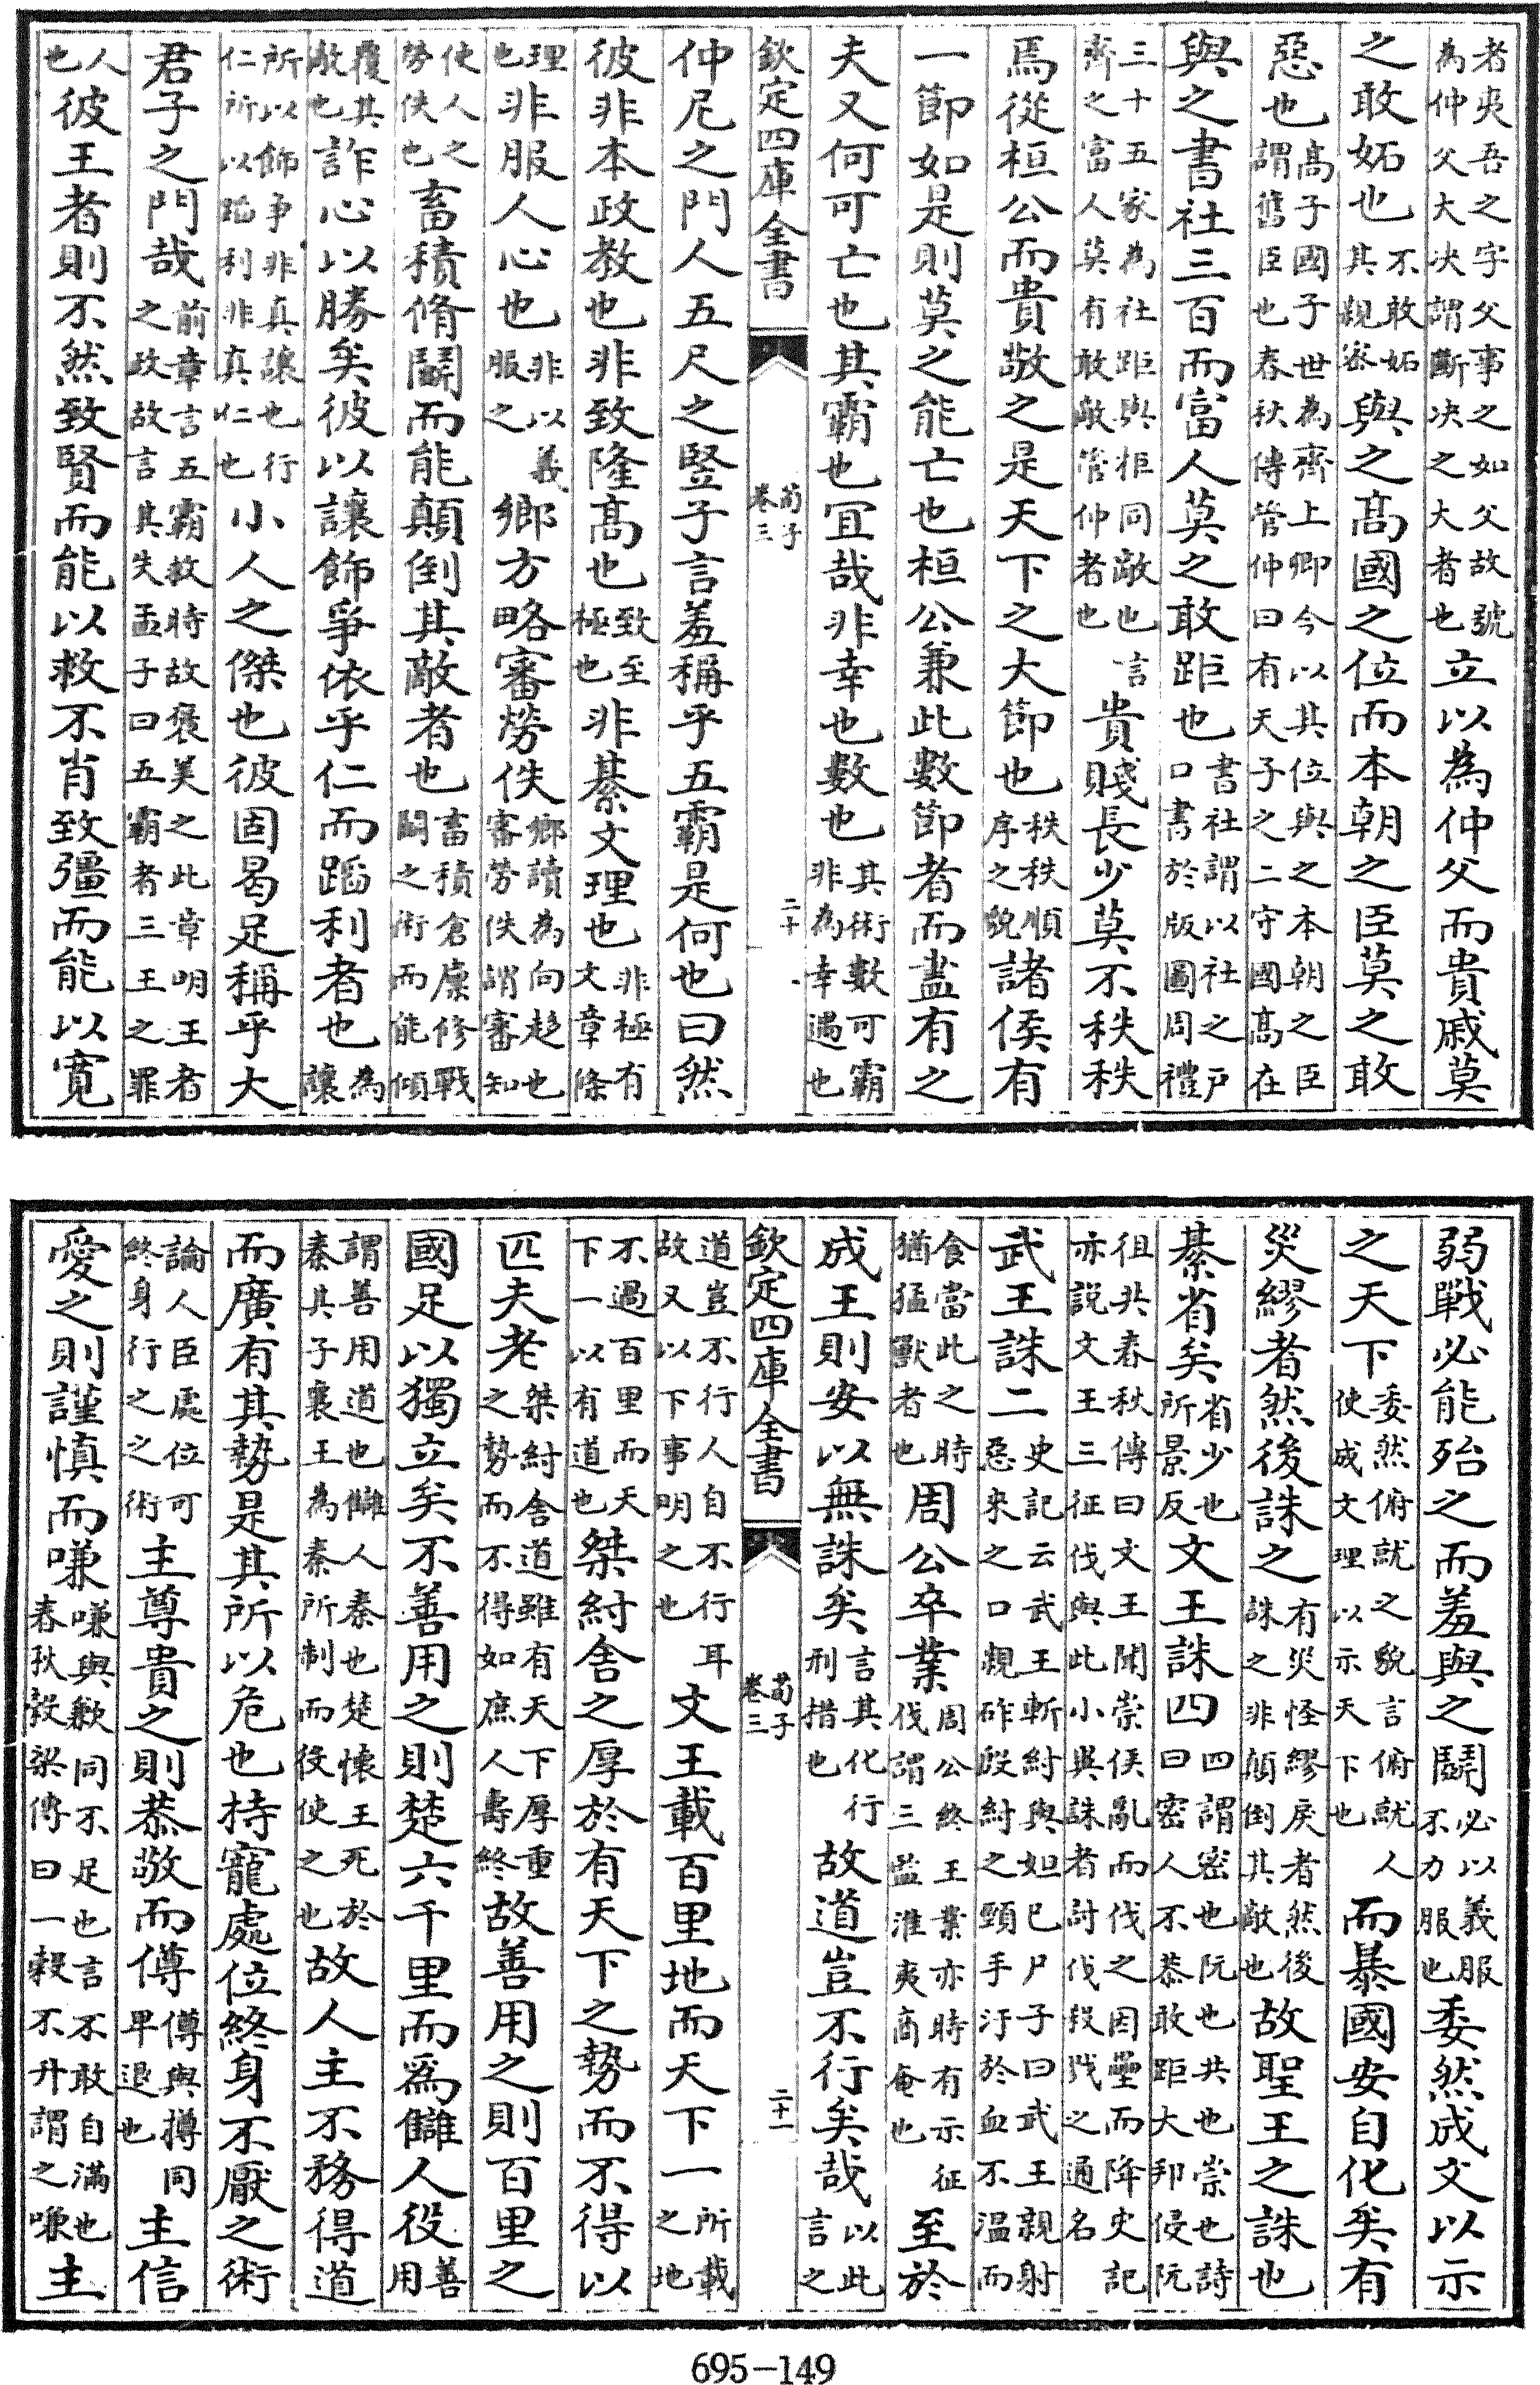 者夷吾之字父事之如父故號為仲父大决謂斷决之大者也立以為仲父而貴戚莫
之敢妬也不敢妬其親宻與之髙國之位而本朝之臣莫之敢
惡也髙子國子世為齊上卿今以其位與之本朝之臣謂舊臣也春秋傳管仲曰有天子之二守國髙在
與之書社三百而富人莫之敢距也書社謂以社之户口書於版圖周禮
三十五家為社距與拒同敵也言齊之富人莫有敢敵管仲者也貴賤長少莫不秩秩
焉從桓公而貴敬之是天下之大節也秩秩順序之貌諸侯有
一節如是則莫之能亡也桓公兼此數節者而盡有之
夫又何可亡也其霸也冝哉非幸也數也其術數可霸非為幸遇也
欽定四庫全書 荀子卷三 二十
仲尼之門人五尺之豎子言羞稱乎五霸是何也曰然
彼非本政教也非致隆髙也致至極也非綦文理也非極有文章條
理也非服人心也非以義服之鄉方略審勞佚鄉讀為向趍也審勞佚謂審知
使人之勞佚也畜積脩鬭而能顛倒其敵者也畜積倉廪修戰鬭之術而能傾
覆其敵也詐心以勝矣彼以讓飾爭依乎仁而蹈利者也為讓
所以飾爭非真讓也行仁所以蹈利非真仁也小人之傑也彼固曷足稱乎大
君子之門哉前章言五霸救時故褒美之此章明王者之政故言其失孟子曰五霸者三王之罪
人也彼王者則不然致賢而能以救不肖致彊而能以寛
弱戰必能殆之而羞與之鬭必以義服不力服也委然成文以示
之天下委然俯就之貌言俯就人使成文理以示天下也而暴國安自化矣有
災繆者然後誅之有災怪繆戾者然後誅之非顛倒其敵也故聖王之誅也
綦省矣省少也所景反文王誅四四謂密也阮也共也崇也詩曰密人不恭敢距大邦侵阮
徂共春秋傳曰文王聞崇侯亂而伐之因壘而降史記亦説文王三征伐與此小異誅者討伐殺戮之通名
武王誅二史記云武王斬紂與妲己尸子曰武王親射惡來之口親斫殷紂之頸手汙於血不温而
食當此之時猶猛獸者也周公卒業周公終王業亦時有示征伐謂三監淮夷商奄也至於
成王則安以無誅矣言其化行刑措也故道豈不行矣哉以此言之
欽定四庫全書 荀子卷三 二十一
道豈不行人自不行耳故又以下事明之也文王載百里地而天下一所載之地
不過百里而天下一以有道也桀紂舍之厚於有天下之勢而不得以
匹夫老桀紂舍道雖有天下厚重之勢而不得如庶人壽終故善用之則百里之
國足以獨立矣不善用之則楚六千里而爲讎人役善用
謂善用道也讎人秦也楚懷王死於秦其子襄王為秦所制而役使之也故人主不務得道
而廣有其勢是其所以危也持寵處位終身不厭之術
論人臣處位可終身行之之術主尊貴之則恭敬而僔僔與撙同卑退也主信
愛之則謹慎而嗛嗛與歉同不足也言不敢自滿也春秋穀梁傳曰一穀不升謂之嗛主
695-149